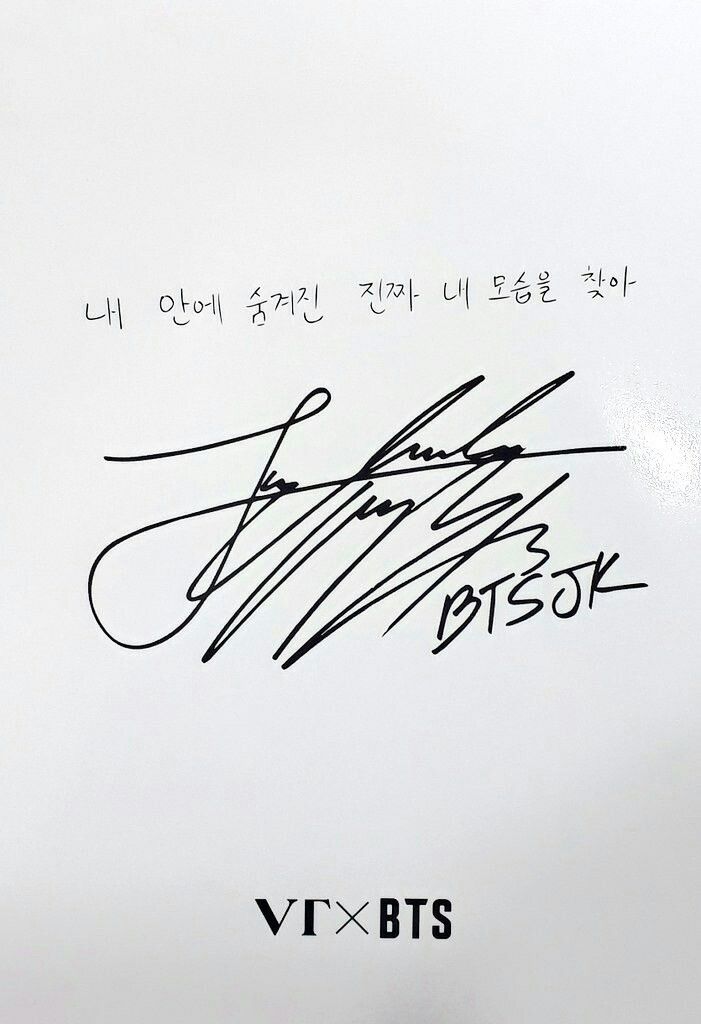 내 안에 숨겨진 진짜 내 모습을 찾아
BTS JK
VT×BTS